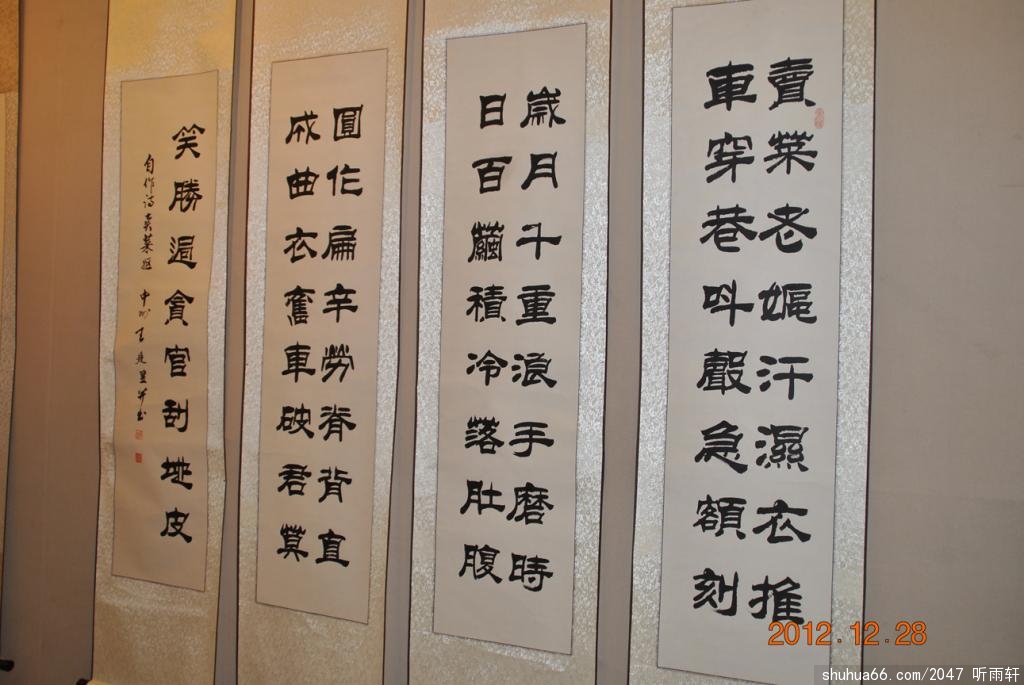 賣菜老嫗汗濕衣推
車穿巷叫聲急額刻
歲月千重浪手磨時
日百繭積冷落肚腹
圓作扁辛勞脊背直
成曲衣舊車破君莫
笑勝過貪官刮地皮
自作詩賣菜嫗 中州王
2012.12.28
shuhua66.com/2047 听雨轩